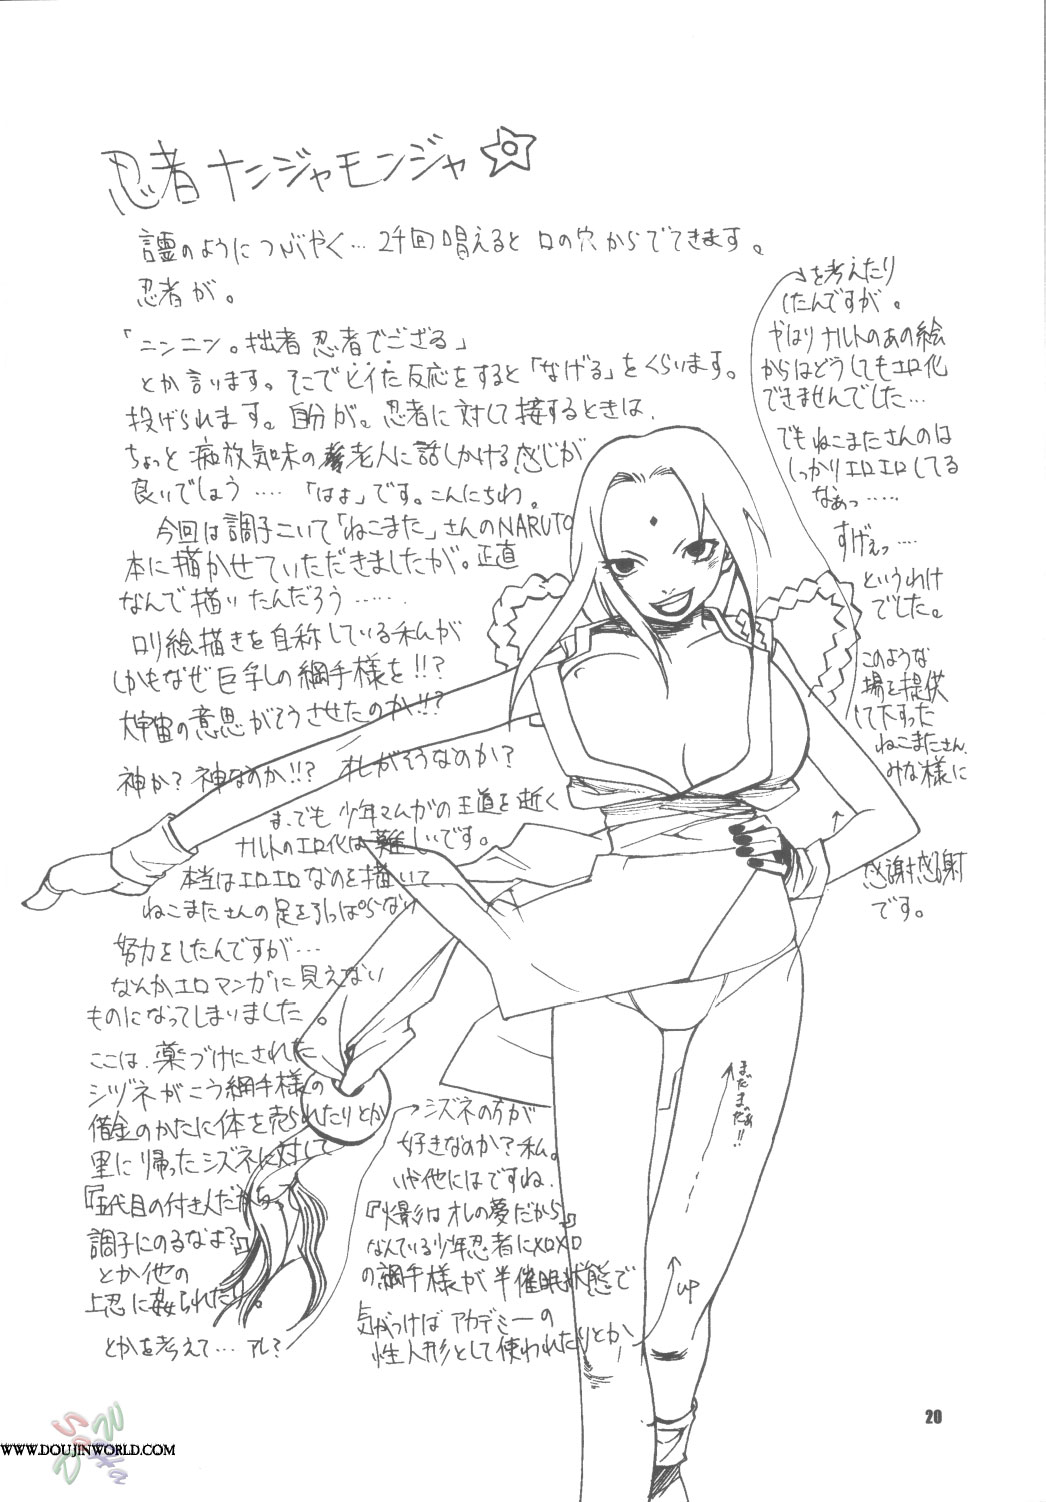 忍者ナンジャモンジャ☆
言霊のようにつぶやく…2千回唱えると口の穴からでてきます。
忍者が。
「ニンニン。拙者忍者でござる」
とか言います。そこでビイた反応をすると「なげる」をくらいます。
投げられます。自分が。忍者に対して接するときは、
ちょっと痴放気味の老人に話しかける感じが
良いでしょう……「はょ」です。こんにちわ。
今回は調子こいて「ねこまた」さんのNARUTO
本に描かせていただきましたが。正直
なんで描いたんだろう……
ロリ絵描きを自称している私が
しかもなぜ巨乳の綱手様を!!?
大宇宙の意思がそうさせたのか!!?
神か?神なのか!!? オレがそうなのか?
ま、でも少年マムガの王道を逝く
ナルトのエロ化は難しいです。
本当はエロエロなのを描いて、
ねこまたさんの足を引っぱらない
努力をしたんですが…
なんかエロマンガに見えない
ものになってしまいました。
ここは、薬づけにされた
シヅネがこう綱手様の
借金のかたに体を売られたりとか
里に帰ったシズネに対して
『五代目の付き人だからって
調子にのるなよ?』
とか他の
上忍に姦られたり。
とかを考えて…アレ?
シズネの方が
好きなのか?私。
いや他にはですね、
『火影はオレの夢だから』
なんている少年忍者にメロメロ
の綱手様が半催眠状態で
気がつけばアカデミーの
性人形として使われたりとか
を考えたり
したんですが。
やはりナルトのあの絵
からはどうしてもエロ化
できませんでした…
でもねこまたさんのは
しっかりエロエロしてる
なぁっ……
すげぇっ…
というわけ
でした。
このような
場を提供
して下すった
ねこまたさん、
みな様に
感謝感謝
です。
まだまだぁ!!
UP
20
WWW.DOUJINWORLD.COM